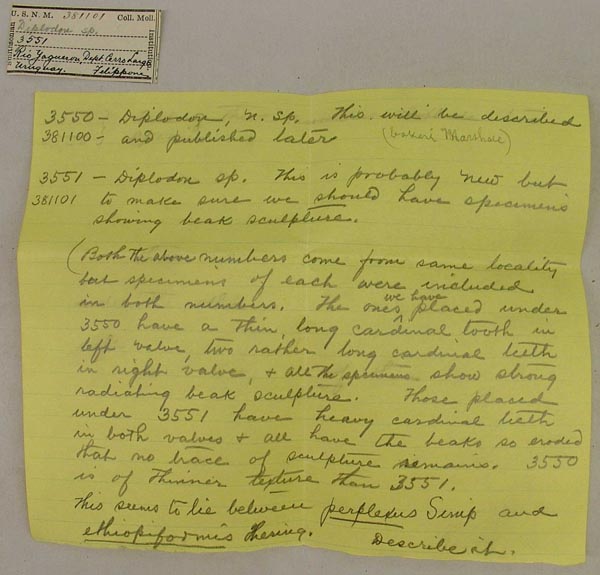 U. S. N. M. 381101 Coll. Moll.
Diplodon sp.
3551
Rio Yaguaron, Dept Cerro Largo
Uruguay. Felippone
Smithsonian
Institution
3550 – Diplodon, n. sp. This will be described
381100 – and published later (bakeri Marshall)
3551 – Diplodon sp. This is probably new but
381101 to make sure we should have specimens
showing beak sculpture.
(Both the above numbers come from same locality
but specimens of each were included
in both numbers. The ones we have placed under
3550 have a thin, long cardinal tooth in
left valve, two rather long cardinal teeth
in right valve, & all the specimens show strong
radiating beak sculpture. Those placed
under 3551 have heavy cardinal teeth
in both valves & all have the beaks so eroded
that no trace of sculpture remains. 3550
is of thinner texture than 3551.
This seems to lie between perplexus Simp and
ethiopiformis Ihering. Describe it.